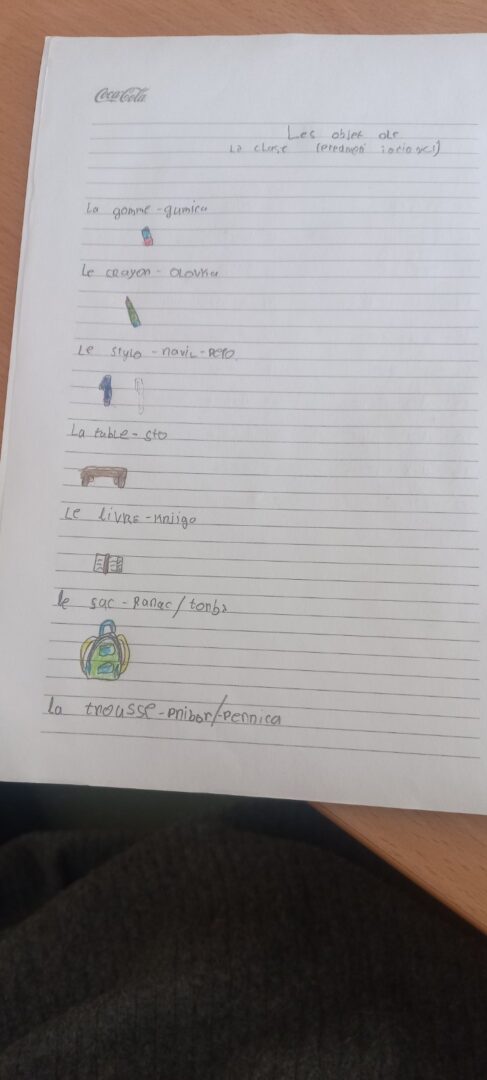 Coca-Cola
Les objet de
La clase
La gomme - gumica
Le crayon - olovka
Le stylo - naviL - pero
La table - sto
Le livre - knjiga
le sac - Ranac/torba
la trousse - pribor/pernica